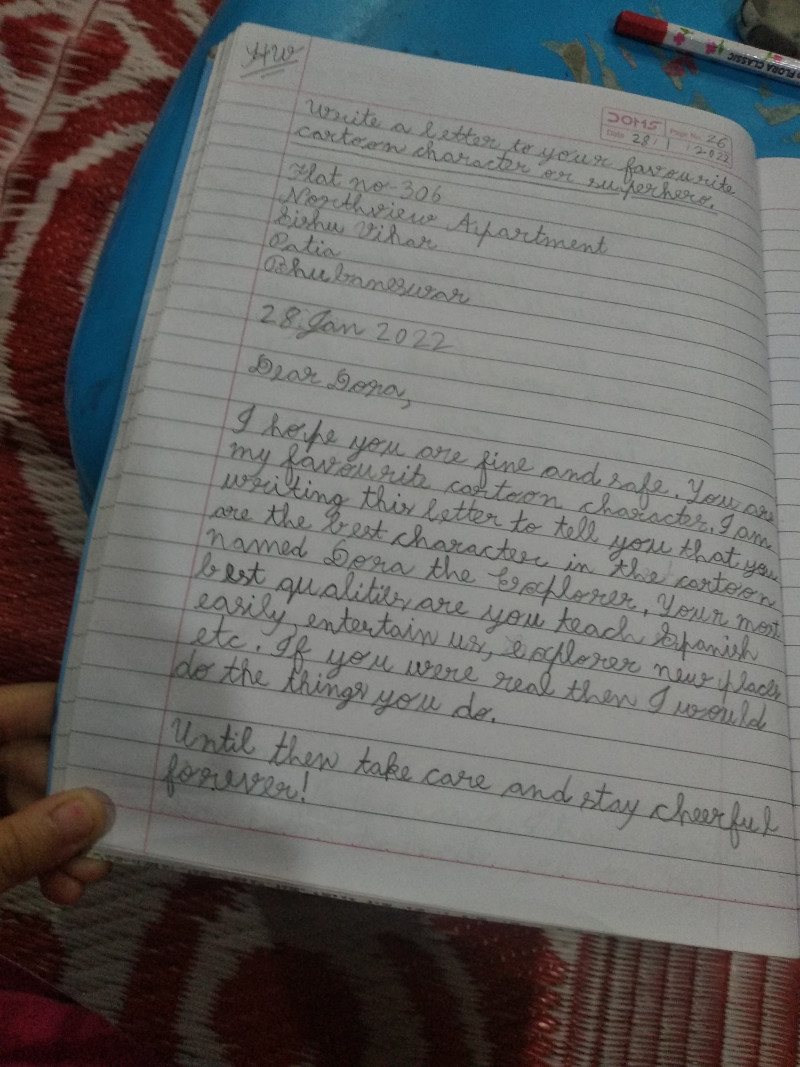 HW
DOMS
Page No. 26
Date 28 / 1 / 2022
Write a letter to your favourite
cartoon character or superhero.
Flat no-306
Northview Apartment
Sishu Vihar
Patia
Bhubaneswar
28 Jan 2022
Dear Dora,
I hope you are fine and safe. You are
my favourite cartoon character. I am
writing this letter to tell you that you
are the best character in the cartoon
named Dora the Explorer. Your most
best qualities are you teach Spanish
easily, entertain us, explorer new places
etc. If you were real then I would
do the things you do.
Until then take care and stay cheerful
forever!
FLORA CLASSIC